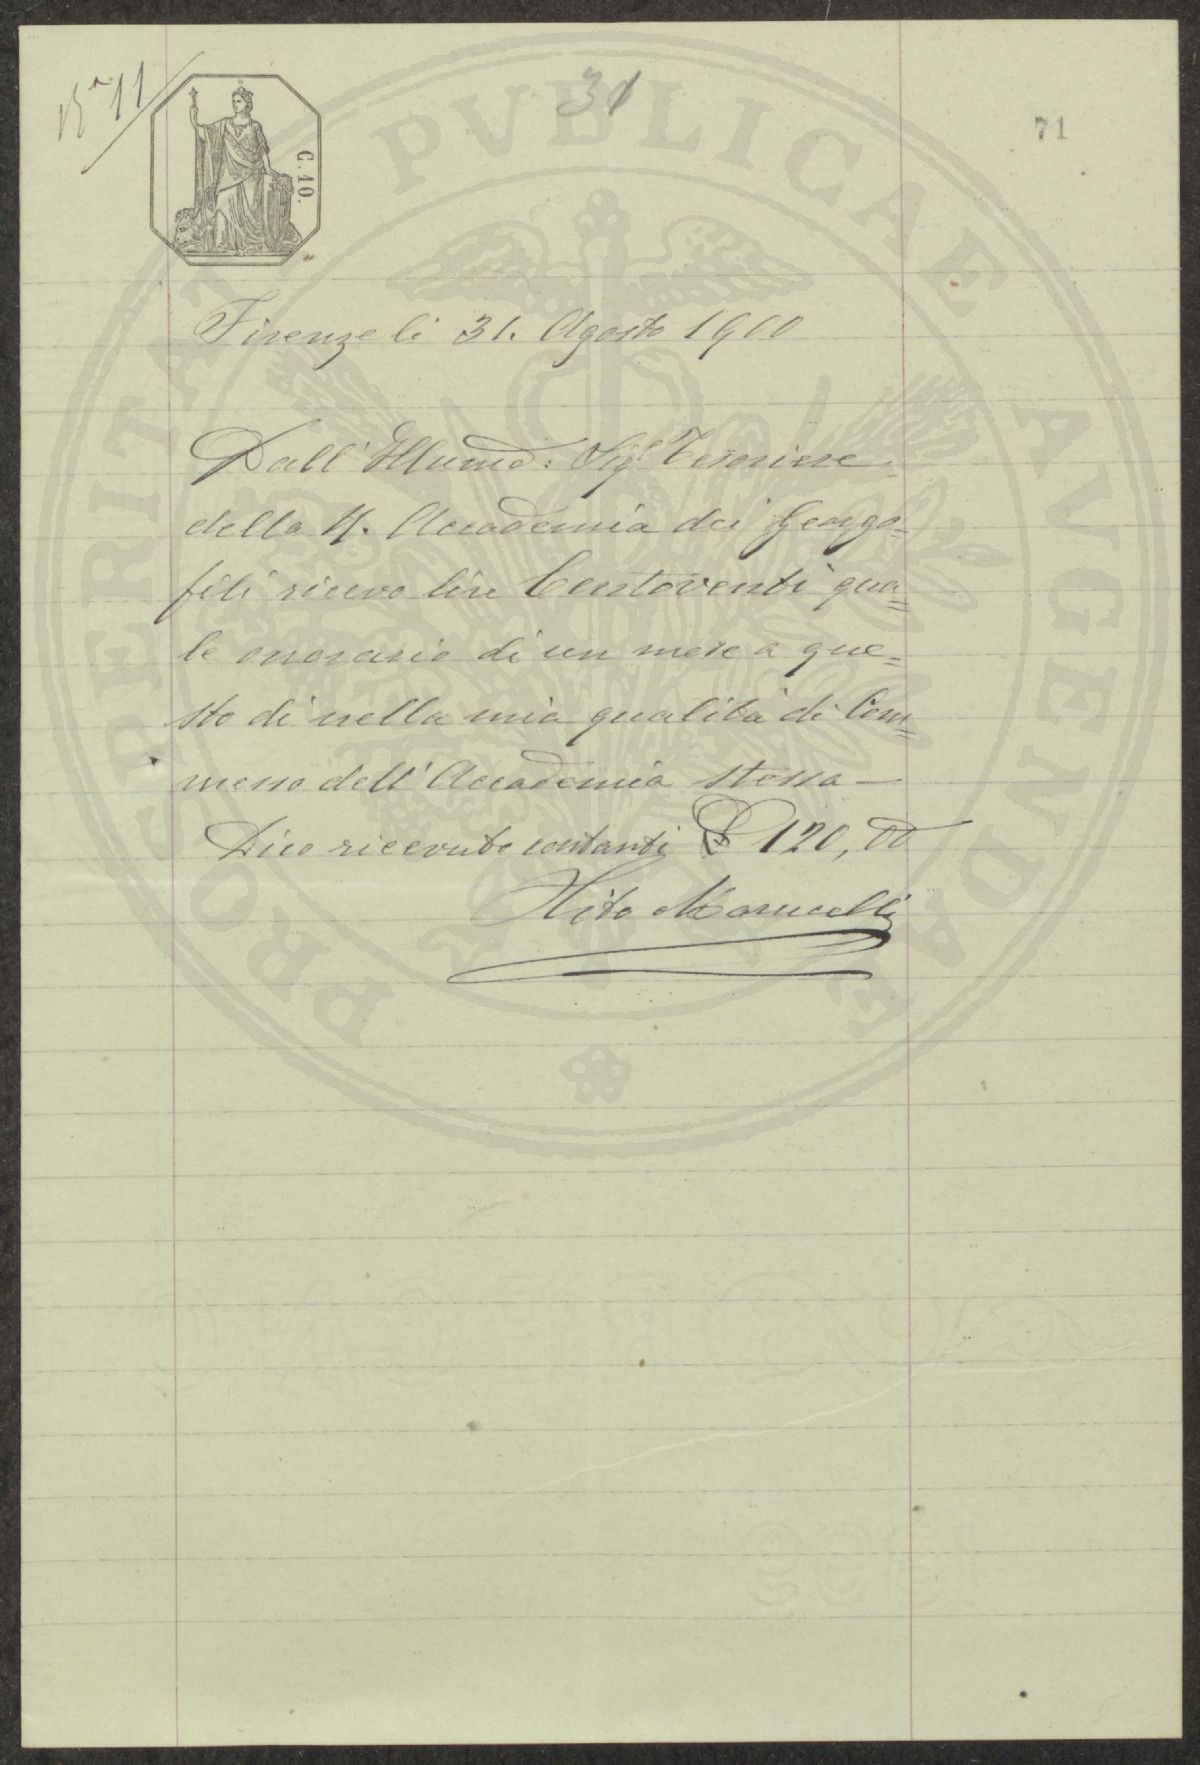 31
71
C. 10.
PROSPERITATI PVBLICAE AVGENDAE
Firenze li 31. Agosto 1900
Dall' Illumo: Sigr. Tesoriere
della R. Accademia dei Georgo=
fili ricevo lire Centoventi qua=
le onorario di un mese a que=
sto dì nella mia qualità di Com=
messo dell' Accademia stessa —
Dico ricevute contanti £ 120,00
Marucelli